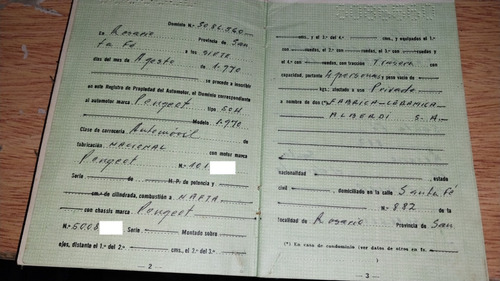 Dominio N.º S084.560
En Rosario Provincia de San
ta Fé a los SIETE
días del mes de Agosto de 1.970
se procede a inscribir
en este Registro de Propiedad del Automotor, el Dominio correspondiente
al automotor marca Peugeot tipo 504
Modelo 1.970
Clase de carrocería Automóvil de
fabricación NACIONAL con motor marca
Peugeot N.º 101
Serie - de - H.P. de potencia y
- cm.³ de cilindrada, combustión a NAFTA
con chassis marca Peugeot
N.º 5008 Serie - Montado sobre -
ejes, distante el 1.º del 2.º - cms., el 2.º del 3.º
— 2 —
cms., y el 3.º del 4.º - cms., y equipados el 1.º
con - ruedas, el 2.º con - ruedas, el 3.º con - ruedas y
el 4.º con - ruedas, con tracción Trasera con
capacidad, portante 6 personas y peso vacío de
- kgs; afectado a uso Privado
a nombre de don FABRICA CERAMICA
ALBERDI S.A.
nacionalidad -, estado
civil -, domiciliado en la calle Santa Fé
N.º 882 de la
localidad de Rosario Provincia de San
(*) En caso de condominio (ver datos de otros en fs.
)
— 3 —